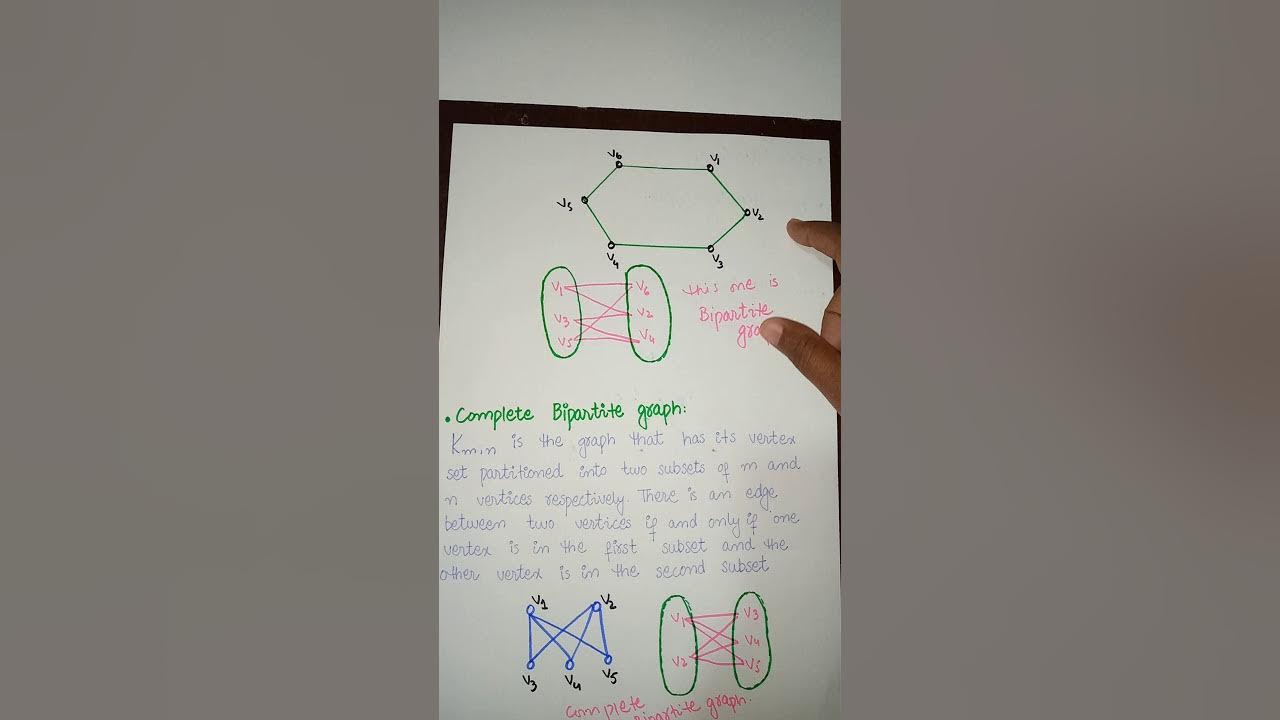 V6 V1
V5 V2
V4 V3
V1 V6
V3 V2
V5 V4
this one is
Bipartite
• Complete Bipartite graph:
Km,n is the graph that has its vertex
set partitioned into two subsets of m and
n vertices respectively. There is an edge
between two vertices if and only if one
vertex is in the first subset and the
other vertex is in the second subset
V1 V2
V3 V4 V5
V1 V3
V4
V2 V5
Complete
Bipartite graph.